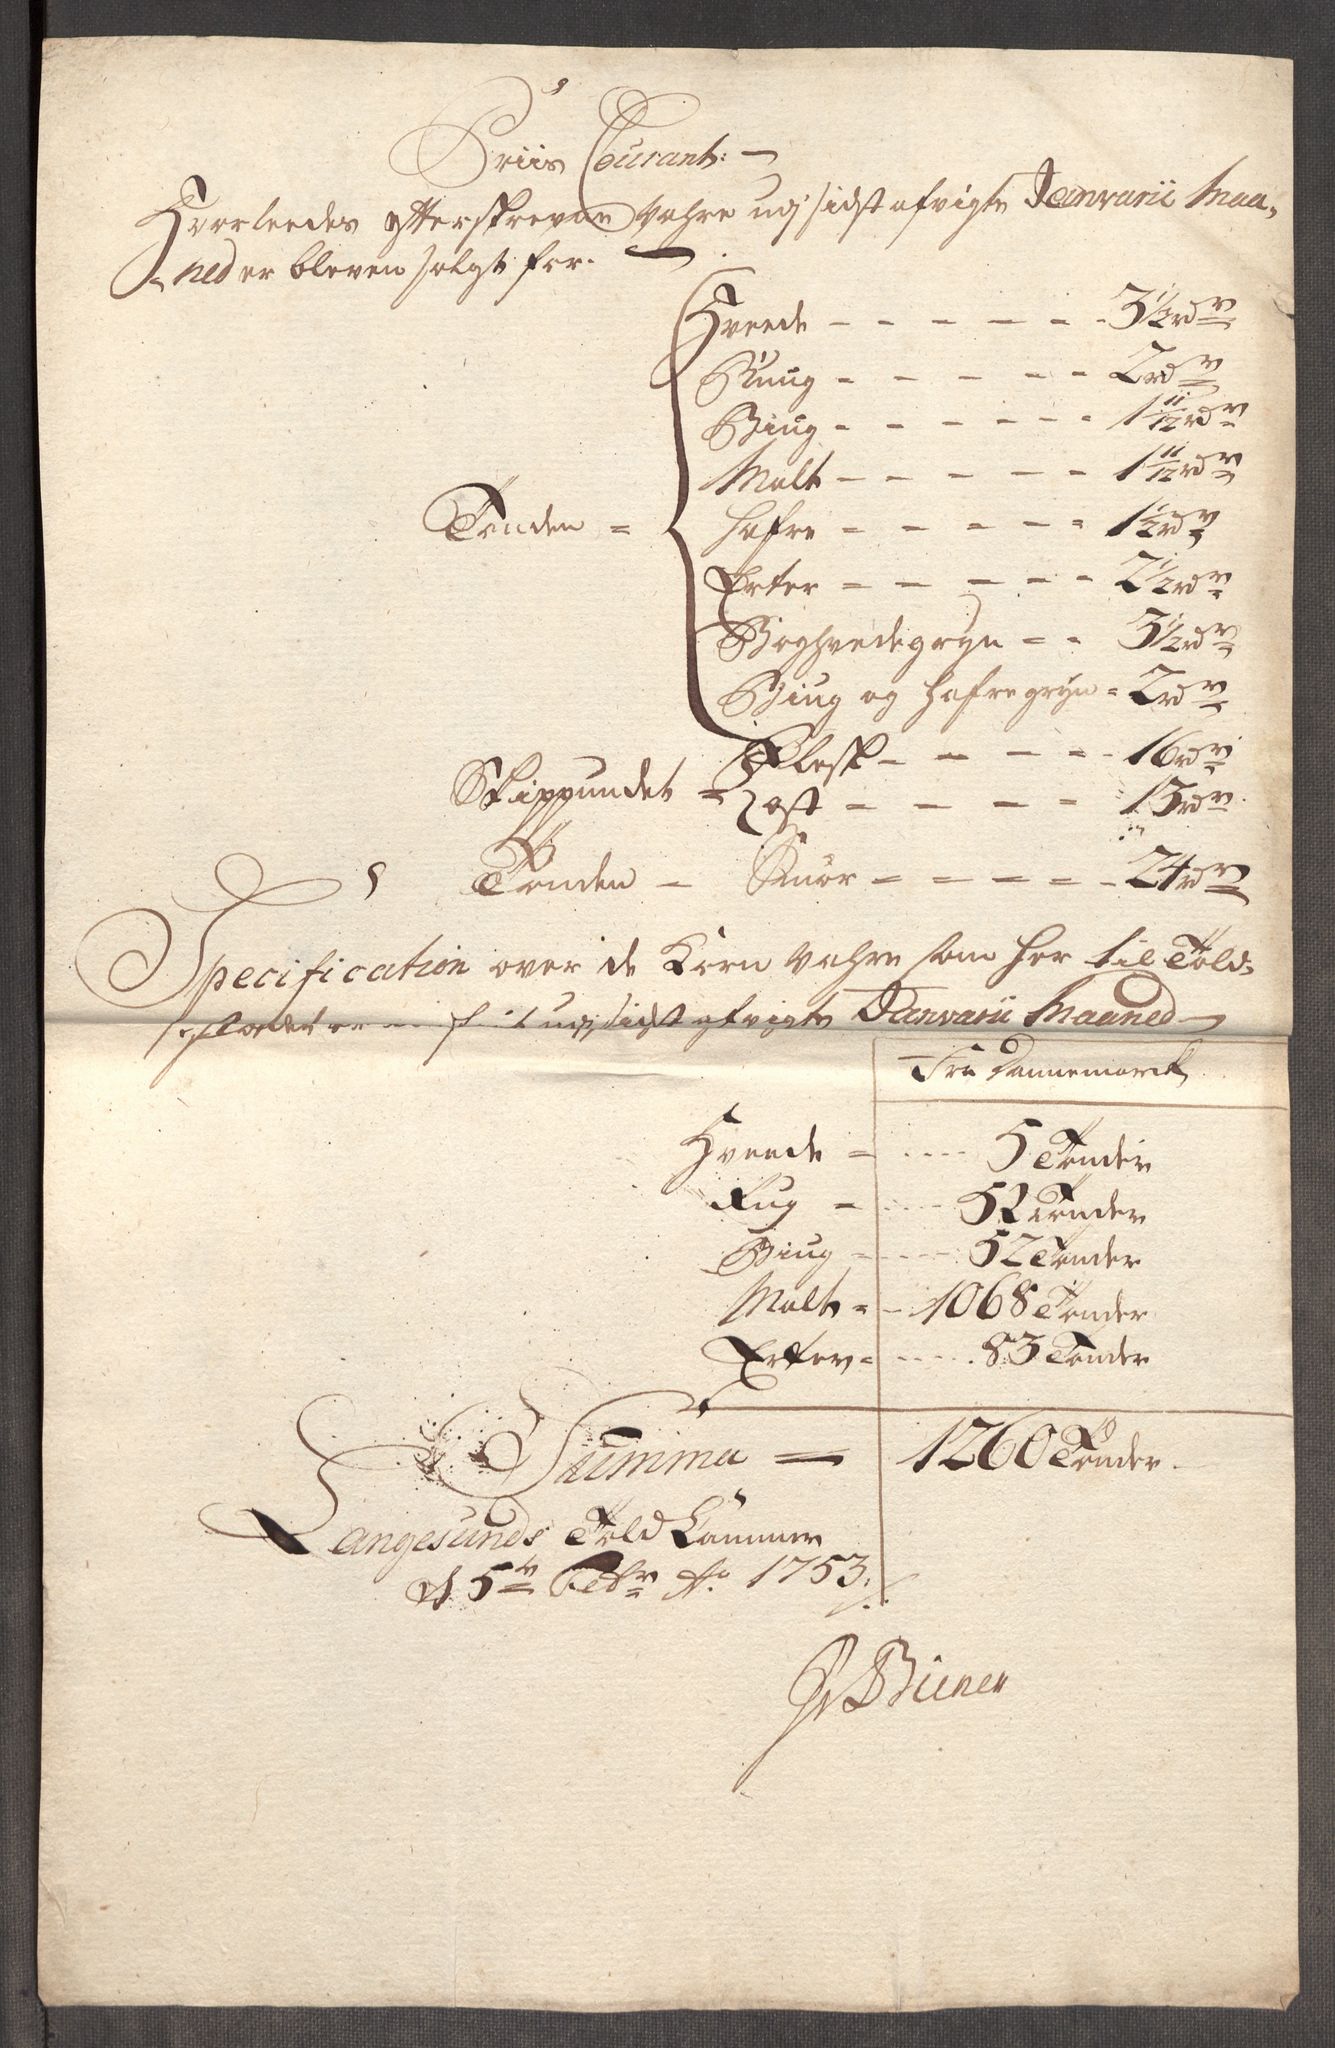 Priis Courant:
Hvorleedes efterskrevne Vahre udj sidst afvigte Janvarii Maa-
ned er bleven solgt for.
Hveede - - - - - 3 1/2 rdr
Ruug - - - - - 2 rdr
Biug - - - - - 1 11/12 rdr
Malt - - - - - 1 11/12 rdr
Tønden = hafre - - - - = 1 1/2 rdr
Erter - - - - - 2 1/2 rdr
Boghvedegryn = - 3 1/2 rdr
Biug og hafregryn = 2 rdr
Skippundet = Flesk - - - - 16 rdr
ost - - - - 13 rdr
Tønden - Smør - - - - - 24 rdr
Specification over de Korn Vahre som her til Told-
stædet er udj sidst afvigte Janvarii Maaned
Fra Dannemarck
Hveede = - - - - 5 Tønder
Rug = - - - - 52 Tønder
Biug = - - - - 52 Tønder
Malt = - 1068 Tønder
Erter = - - - - 83 Tønder
Summa = 1260 Tønder.
Langesunds Told Kammer
d 5te Febr Ao. 1753.